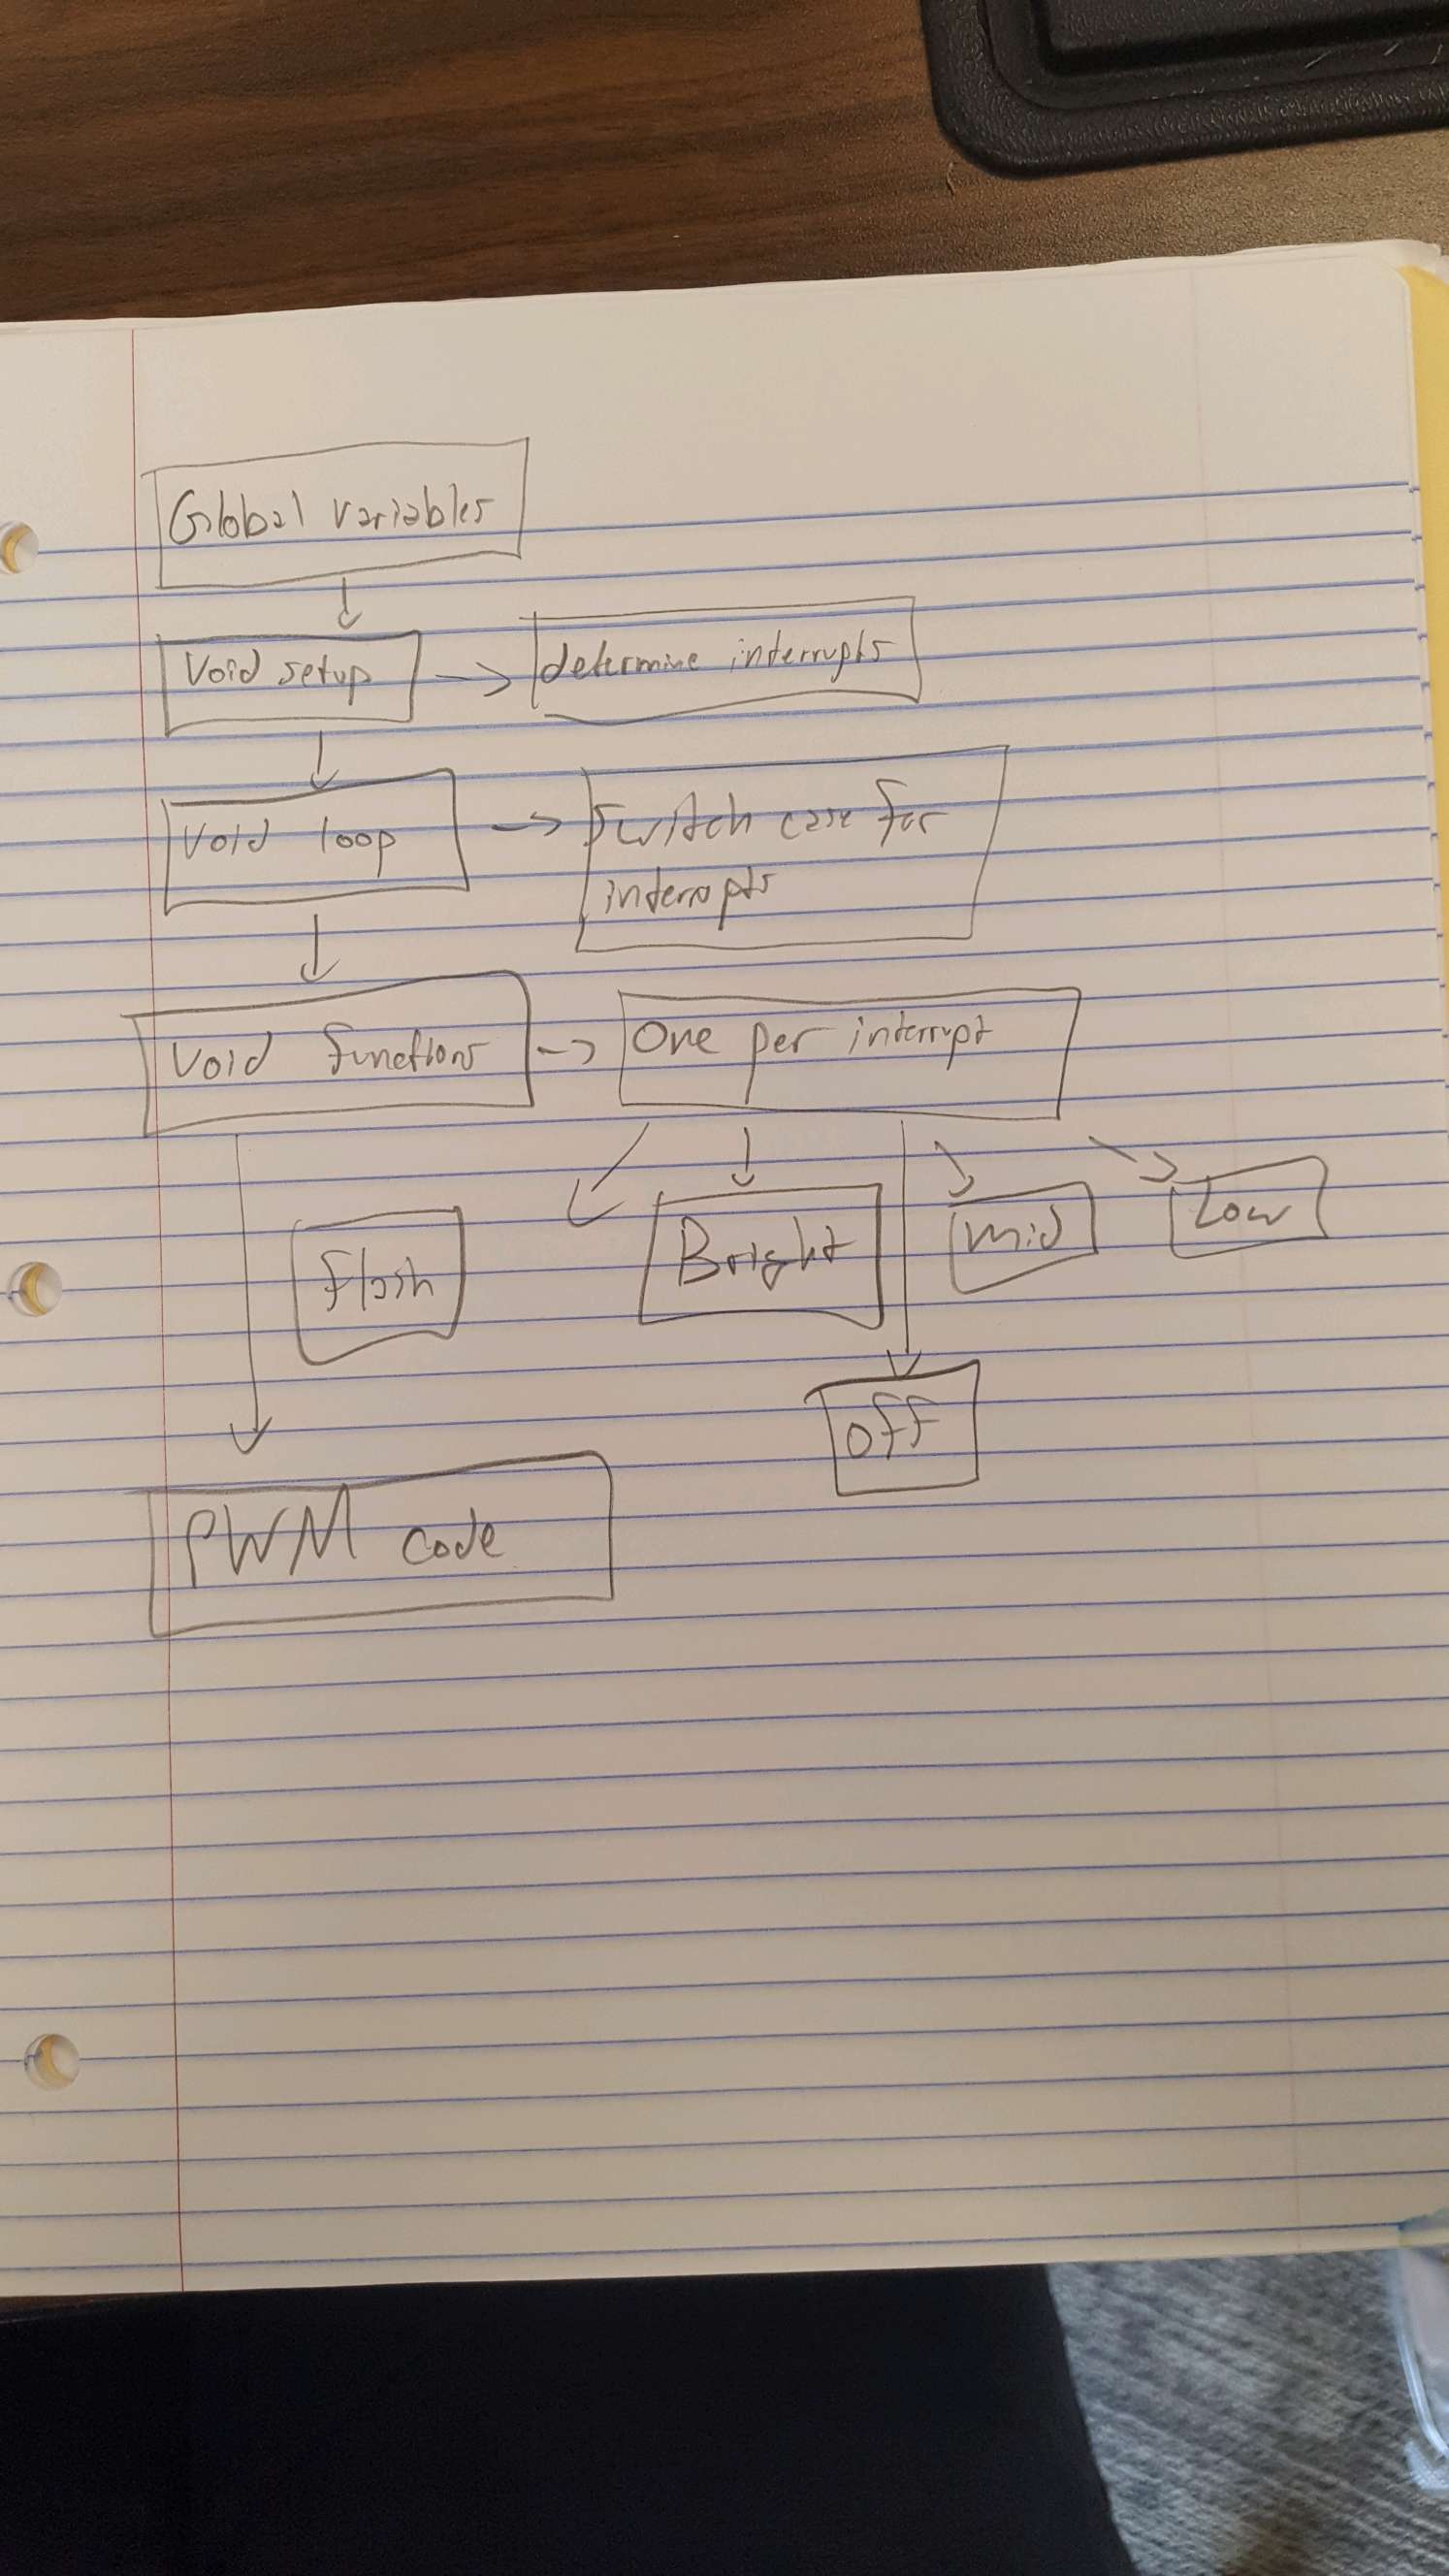 Global variables
Void setup
determine interrupts
Void loop
Switch case for
interrupts
Void functions
One per interrupt
Flash
Bright
Mid
Low
off
PWM code